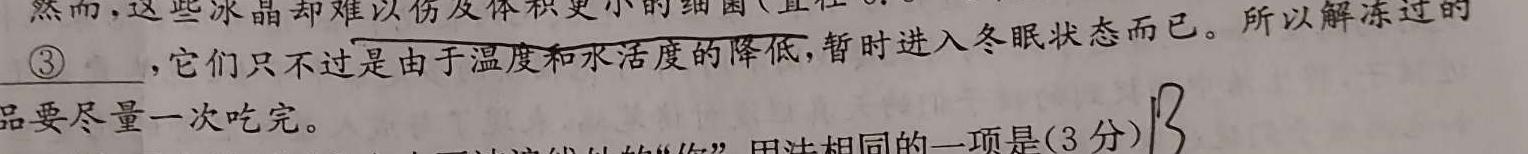 然而,这些冰晶却难以伤及体积更小的细菌(直径
③ ,它们只不过是由于温度和水活度的降低,暂时进入冬眠状态而已。所以解冻过的
品要尽量一次吃完。
用法相同的一项是(3分) B